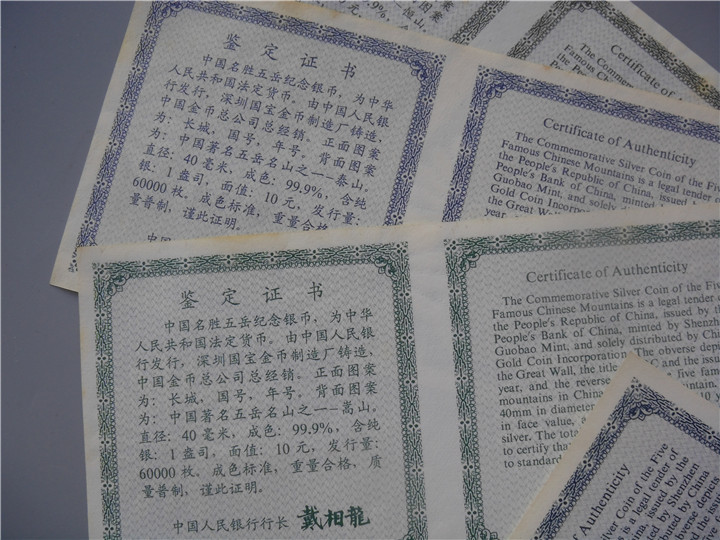 元, 发
99.9%, 含
面图案
嵩山。
Certificate of
The Commemorative
Famous Chinese
鉴定证书
中国名胜五岳纪念银币, 为中华
人民共和国法定货币。由中国人民银
行发行, 深圳国宝金币制造厂铸造,
中国金币总公司总经销。正面图案
为: 长城, 国号, 年号。背面图案
为: 中国著名五岳名山之一-泰山。
直径: 40毫米, 成色: 99.9%, 含纯
银: 1盎司, 面值: 10元, 发行量:
60000枚。成色标准, 重量合格,
量普制, 谨此证明。
中国
Certificate of Authenticity
The Commemorative Silver Coin of the Five
Famous Chinese Mountains is a legal tender of
the People's Republic of China, issued by
People's Bank of China, minted by
Guobao Mint, and solely distributed
Gold Coin Incorpor
the Great Wall,
year,
鉴定证书
中国名胜五岳纪念银币, 为中华
人民共和国法定货币。由中国人民银
行发行, 深圳国宝金币制造厂铸造,
中国金币总公司总经销。正面图案
为: 长城, 国号, 年号。背面图案
为: 中国著名五岳名山之一-嵩山。
直径: 40毫米, 成色: 99.9%, 含纯
银: 1盎司, 面值: 10元, 发行量:
60000枚。成色标准, 重量合格, 质
量普制, 谨此证明。
中国人民银行行长 戴相龍
Certificate of Authenticity
The Commemorative Silver Coin of the Five
Famous Chinese Mountains is a legal tender of
the People's Republic of China, issued by the
People's Bank of China, minted by Shenzhen
Guobao Mint, and solely distributed by China
Gold Coin Incorporation. The obverse depicts
the Great Wall, the title of PRC and the issue
year, and the reverse five famous
mountains in China
40mm in diameter
in face value, a
silver. The tota
to certify that
to standard
of Authenticity
Silver Coin of the Five
is a legal tender of
China, issued by the
minted by Shenzhen
distributed by China
obverse depicts
and the issue